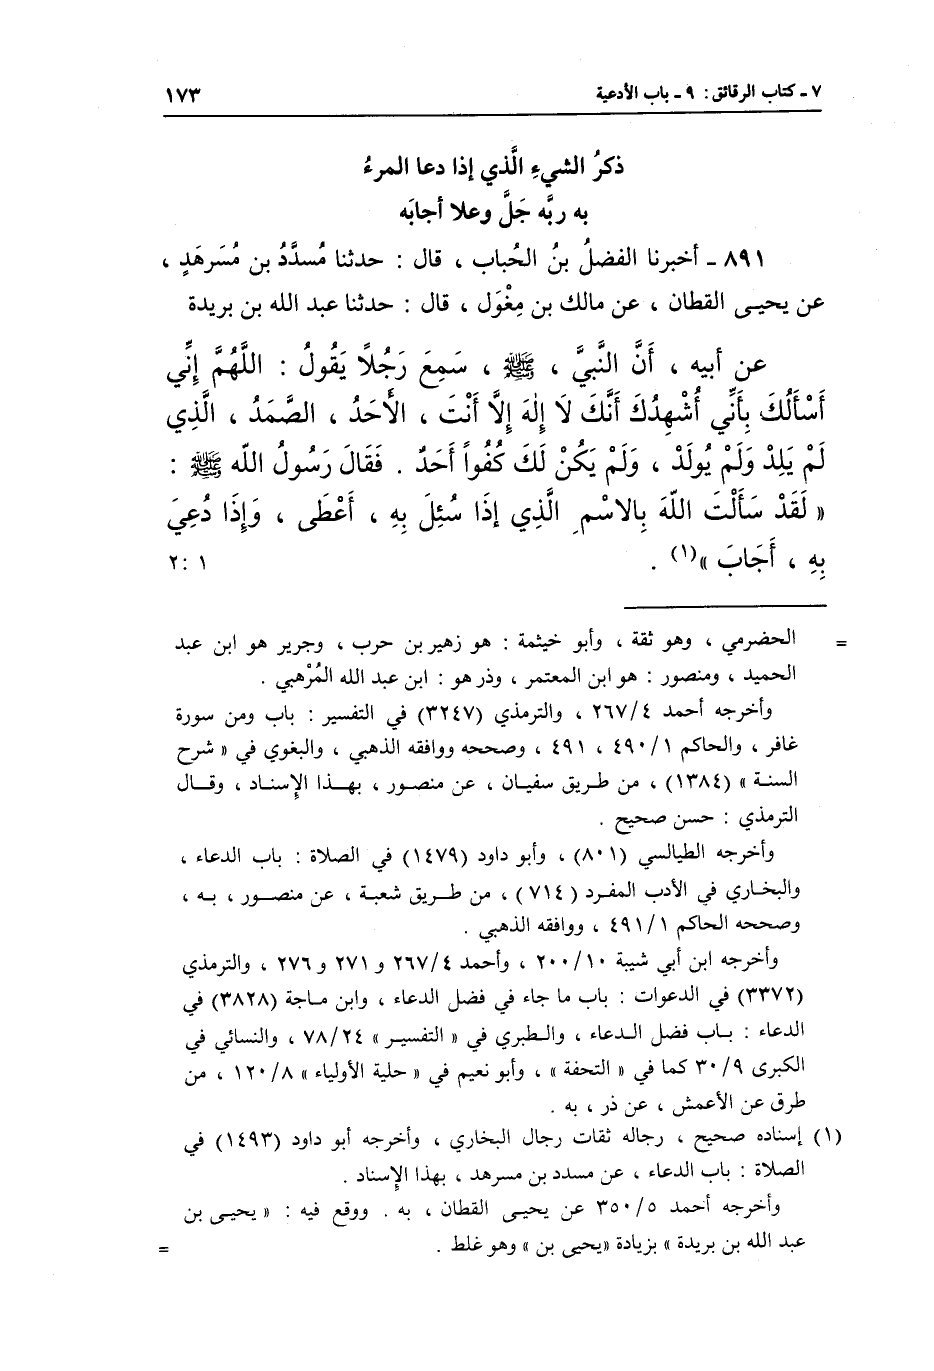 ٧ - كتاب الرقائق : ٩ - باب الأدعية ١٧٣
ذكرُ الشيءِ الَّذي إذا دعا المرءُ
به ربَّه جَلَّ وعلا أجابَه
٨٩١ - أخبرنا الفضلُ بنُ الحُباب ، قال : حدثنا مُسدَّدُ بن مُسَرهَدٍ ،
عن يحيـى القطان ، عن مالك بن مِغْوَل ، قال : حدثنا عبد الله بن بريدة
عن أبيه ، أَنَّ النَّبيَّ ، ﷺ ، سَمِعَ رَجُلاً يَقُولُ : اللَّهُمَّ إِنِّي
أَسْأَلُكَ بِأَنِّي أُشْهِدُكَ أَنَّكَ لَا إِلٰهَ إِلَّا أَنْتَ ، الأَحَدُ ، الصَّمَدُ ، الَّذِي
لَمْ يَلِدْ وَلَمْ يُولَدْ ، وَلَمْ يَكُنْ لَكَ كُفُواً أَحَدٌ . فَقَالَ رَسُولُ اللّه ﷺ :
« لَقَدْ سَأَلْتَ اللّهَ بِالاسْمِ الَّذِي إِذَا سُئِلَ بِهِ ، أَعْطَى ، وَإِذَا دُعِيَ
بِهِ ، أَجَابَ »(١) . ١ : ٢
= الحضرمي ، وهو ثقة ، وأبو خيثمة : هو زهير بن حرب ، وجرير هو ابن عبد
الحميد ، ومنصور : هو ابن المعتمر ، وذر هو : ابن عبد الله المُرْهبي .
وأخرجه أحمد ٢٦٧/٤ ، والترمذي (٣٢٤٧) في التفسير : باب ومن سورة
غافر ، والحاكم ٤٩٠/١ ، ٤٩١ ، وصححه ووافقه الذهبي ، والبغوي في « شرح
السنة » (١٣٨٤) ، من طريق سفيان ، عن منصور ، بهـذا الإسناد ، وقـال
الترمذي : حسن صحيح .
وأخرجه الطيالسي (٨٠١) ، وأبو داود (١٤٧٩) في الصلاة : باب الدعاء ،
والبخاري في الأدب المفرد (٧١٤) ، من طريق شعبة ، عن منصـور ، بـه ،
وصححه الحاكم ٤٩١/١ ، ووافقه الذهبي .
وأخرجه ابن أبي شيبة ٢٠٠/١٠ ، وأحمد ٢٦٧/٤ و ٢٧١ و ٢٧٦ ، والترمذي
(٣٣٧٢) في الدعوات : باب ما جاء في فضل الدعاء ، وابن ماجة (٣٨٢٨) في
الدعاء : بـاب فضل الدعاء ، والطبري في « التفسيـر » ٧٨/٢٤ ، والنسائي في
الكبرى ٣٠/٩ كما في « التحفة » ، وأبو نعيم في « حلية الأولياء » ١٢٠/٨ ، من
طرق عن الأعمش ، عن ذر ، به .
(١) إسناده صحيح ، رجاله ثقات رجال البخاري ، وأخرجه أبو داود (١٤٩٣) في
الصلاة : باب الدعاء ، عن مسدد بن مسرهد ، بهذا الإسناد .
وأخرجه أحمد ٣٥٠/٥ عن يحيـى القطان ، به . ووقع فيه : « يحيـى بن
عبد الله بن بريدة » بزيادة «يحيى بن » وهو غلط . =